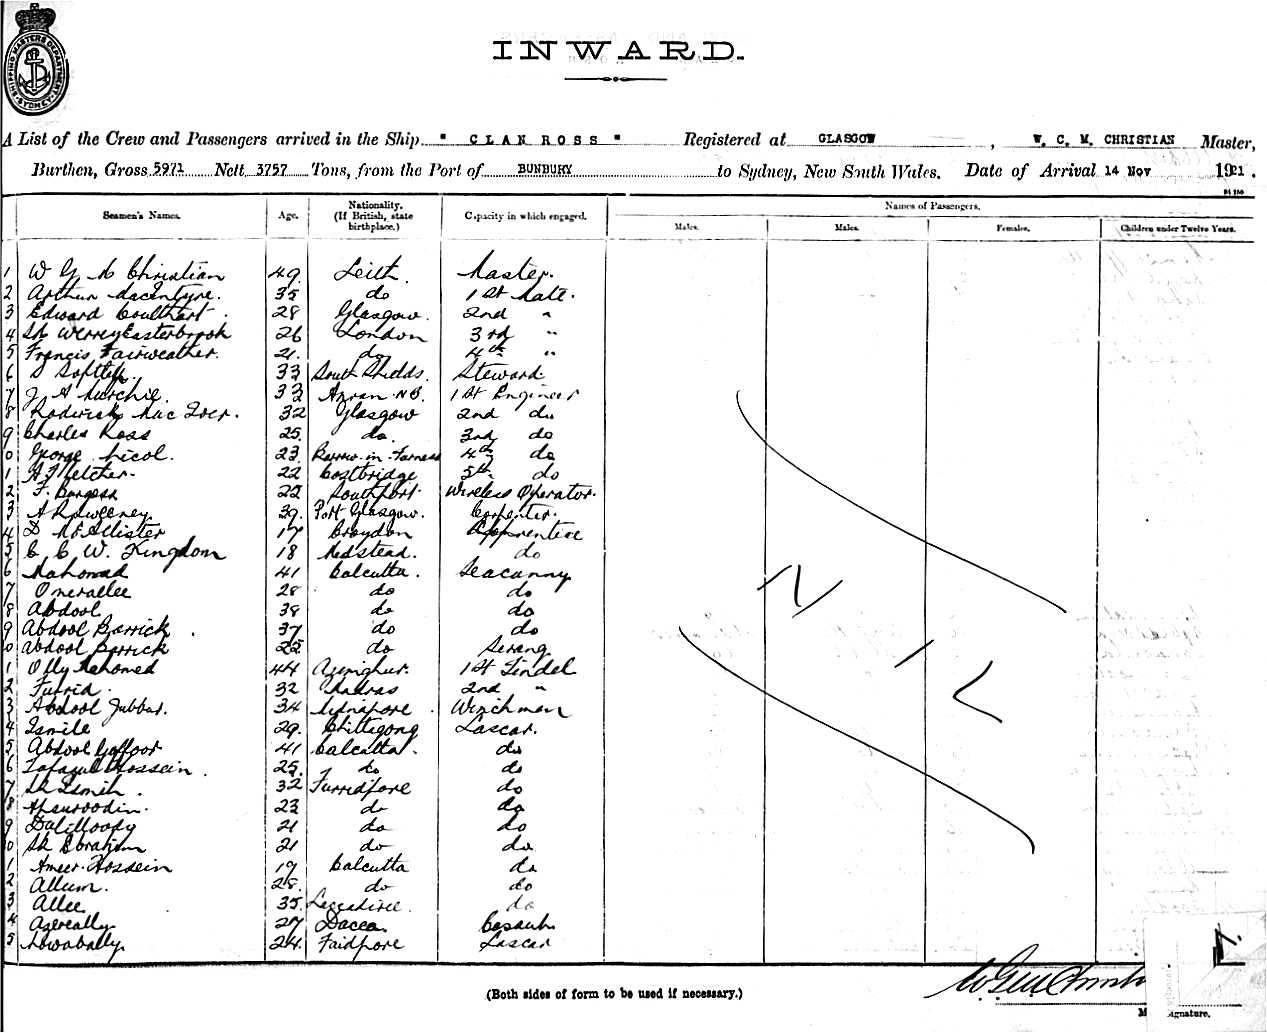 SHIPPING MASTERS DEPARTMENT SYDNEY
INWARD.
A List of the Crew and Passengers arrived in the Ship " CLAN ROSS " Registered at GLASGOW, W. C. M. CHRISTIAN Master,
Burthen, Gross 5971 Nett 3757 Tons, from the Port of BUNBURY to Sydney, New South Wales. Date of Arrival 14 Nov 1921.
Seamen's Names. Age. Nationality. (If British, state birthplace.) Capacity in which engaged. Names of Passengers.
Males. Males. Females. Children under Twelve Years.
1 W G M Christian 49. Leith. Master.
2 Arthur MacIntyre. 35 do 1st Mate.
3 Edward Coulthart. 28 Glasgow. 2nd "
4 Easterbrook 26 London 3rd "
5 Francis Fairweather. 21. do 4th "
6 33 South Shields. Steward
7 J A Murchie. 33 Arran N.B. 1st Engineer
8 Roderick Mac 32 Glasgow 2nd do
9 Charles Ross 25. do. 3rd do
0 George Nicol. 23. Barrow-in-Furness 4th do
1 A Fletcher. 22 Coatbridge 5th do
2 F. Burgess 22 Southport. Wireless Operator.
3 A McSweeney. 39. Port Glasgow. Carpenter.
4 D McAllister 17 Croydon Apprentice
5 C C W. Kingdom 18 do
6 Mahomed 41 Calcutta. Seacunny
7 28 do do
8 Abdool 38 do do
9 Abdool Barrick. 37 do do
0 Abdool Barrick 25 do Serang
1 Olly Mahomed 44 Azimghur. 1st Tindel
2 Furrid. 32 Madras 2nd "
3 Abdool Jubbar. 34 Midnapore. Winchman
4 Ismile 29. Chittigong Lascar.
5 Abdool Goffoor 41 Calcutta. do
6 Tafazul Hossein. 25. do do
7 Sk Ismile. 32 Furridpore do
8 23 do do
9 21 do do
0 Sk Ebrahim 21 do do
1 Ameer Hossein 19 Calcutta do
2 Allum. 28. do do
3 Allee 35. do
4 Azerally 27 Dacca
5 Nowabally 24. Faidpore Lascar
NIL
(Both sides of form to be used if necessary.)
W G M Christi